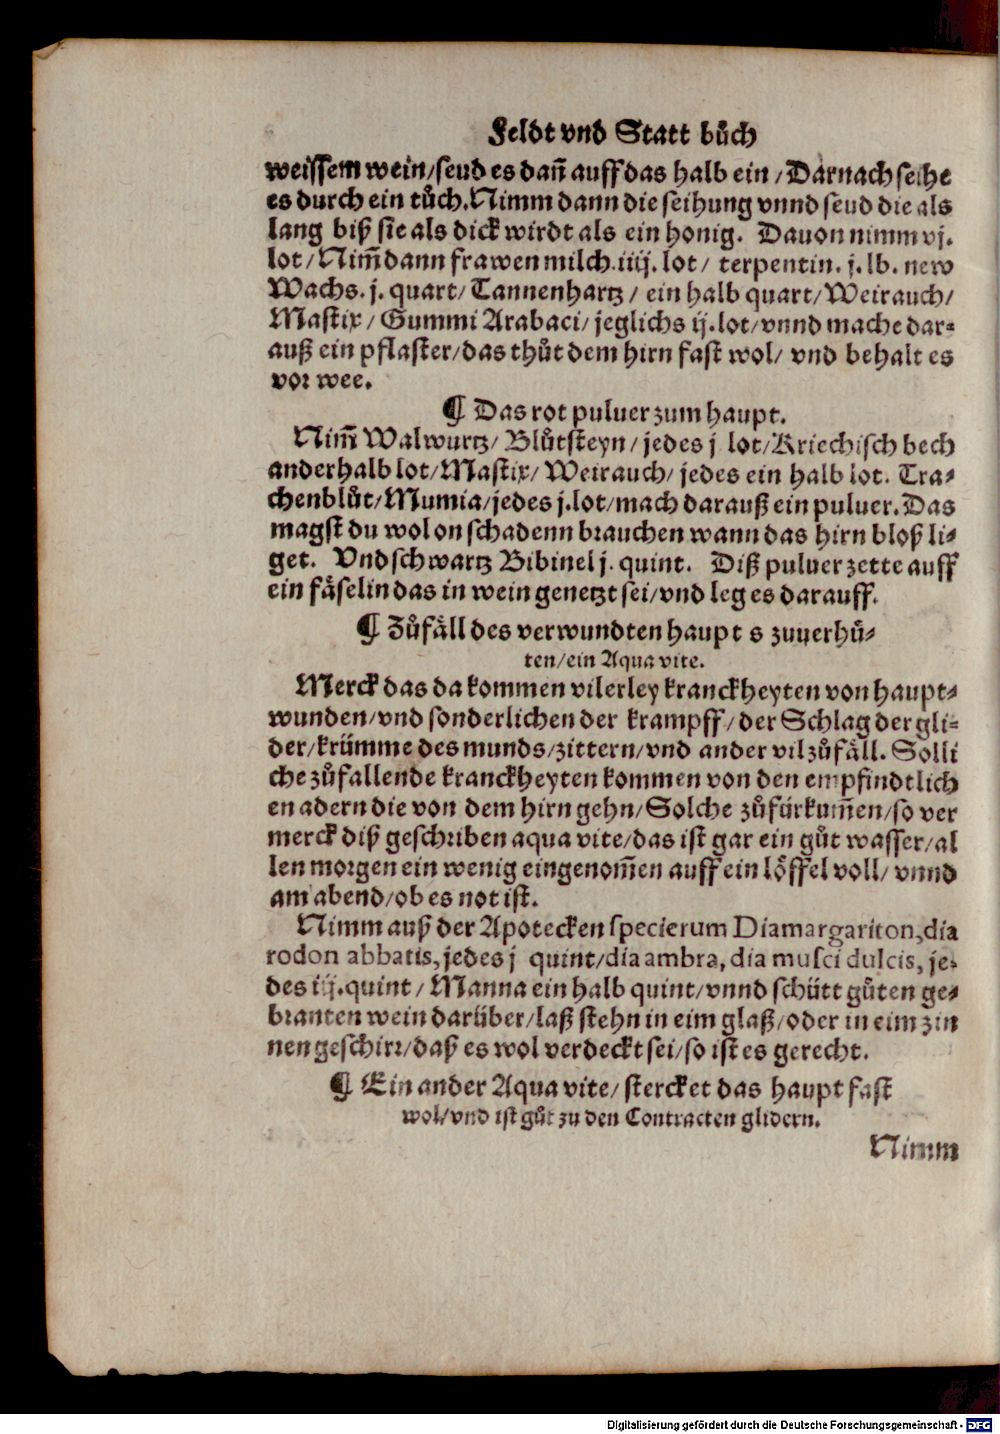 Feldt vnd Statt bůch
weissem wein/seud es dañ auff das halb ein/Darnach seihe
es durch ein tůch. Nimm dann die seihung vnnd seud die als
lang biß sie als dick wirdt als ein honig. Dauon nimm vj.
lot/Nim̄ dann frawen milch. iiij. lot/ terpentin. j. lb. new
Wachs. j. quart/ Tannenhartz/ ein halb quart/Weirauch/
Mastix/ Gummi Arabaci/ jeglichs ij. lot/vnnd mache dar-
auß ein pflaster/das thůt dem hirn fast wol/ vnd behalt es
vor wee.
¶ Das rot puluer zum haupt.
Nim̄ Walwurtz/ Blůtsteyn/ jedes j lot/Kriechisch bech
anderhalb lot/Mastix/ Weirauch/ jedes ein halb lot. Tra-
chenblůt/Mumia/jedes j. lot/mach darauß ein puluer. Das
magst du wol on schadenn brauchen wann das hirn bloß li-
get. Vnd schwartz Bibinel j. quint. Diß puluer zette auff
ein fäselin das in wein genetzt sei/vnd leg es darauff.
¶ Zůfäll des verwundten haupt s zuuerhů-
ten/ein Aqua vite.
Merck das da kommen vilerley kranckheyten von haupt-
wunden/vnd sonderlichen der krampff/der Schlag der gli-
der/krümme des munds/zittern/vnd ander vil zůfäll. Solli
che zůfallende kranckheyten kommen von den empfindtlich
en adern die von dem hirn gehn/Solche zůfürkum̄en/so ver
merck diß geschriben aqua vite/das ist gar ein gůt wasser/al
len morgen ein wenig eingenom̄en auff ein löffel voll/ vnnd
am abend/ob es not ist.
Nimm auß der Apotecken specierum Diamargariton, dia
rodon abbatis, jedes j quint/dia ambra, dia musci dulcis, je-
des iij. quint/ Manna ein halb quint/vnnd schütt gůten ge-
branten wein darüber/laß stehn in eim glaß/oder in eim zin
nen geschirr/daß es wol verdeckt sei/so ist es gerecht.
¶ Ein ander Aqua vite/ stercket das haupt fast
wol/vnd ist gůt zu den Contracten glidern.
Nimm
Digitalisierung gefördert durch die Deutsche Forschungsgemeinschaft - DFG